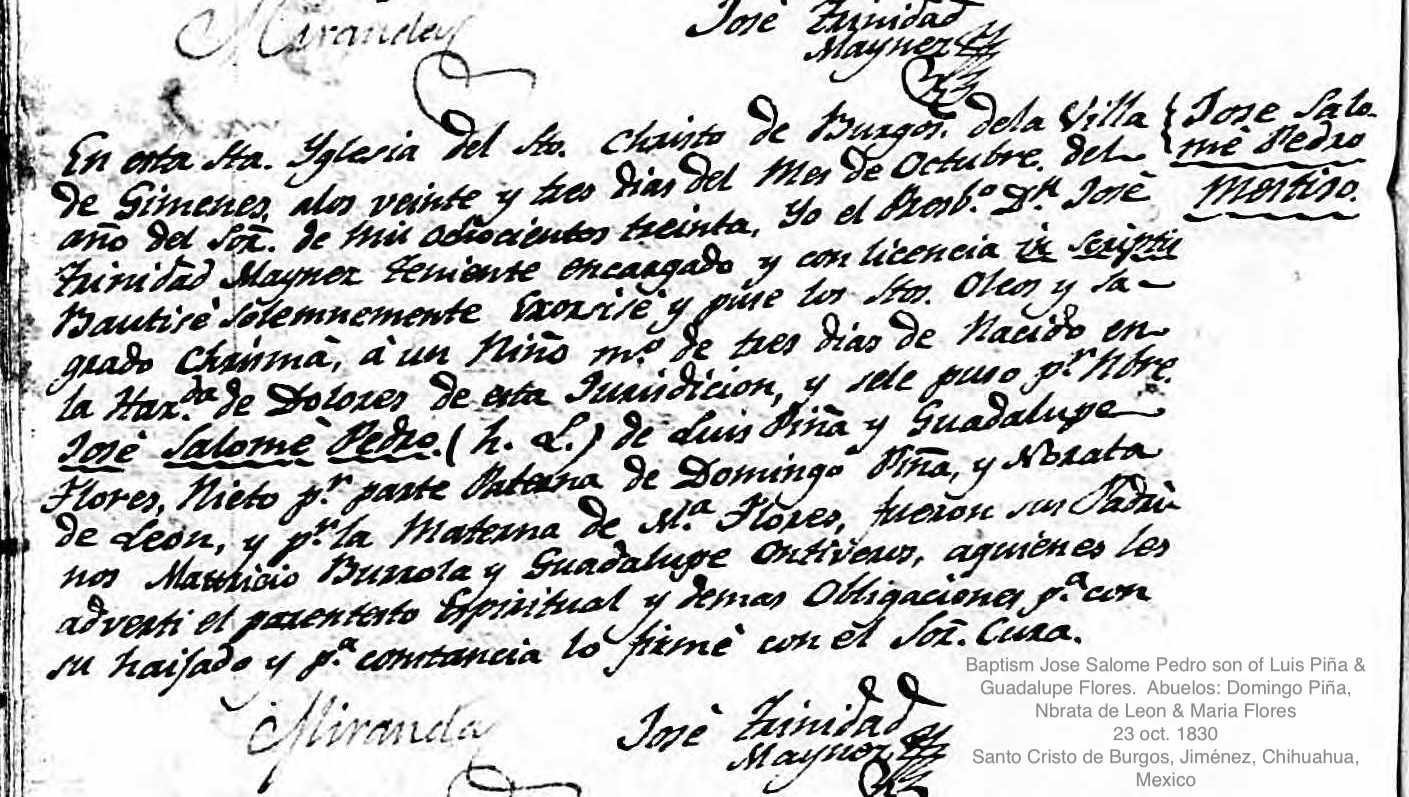 Miranda
José Trinidad
Mayner
En esta Sta. Yglesia del Sto. Christo de Burgos. dela Villa
de Gimenes, alos veinte y tres dias del Mes de Octubre. del
año del Sor. de mil ochocientos treinta, Yo el Presb.o Dn. José
Trinidad Mayner teniente encargado y con licencia in scriptis
Bautisé solemnemente Exorsisé, y puse los Stos. Oleos y sa-
grado Chrismà, à un Niño m.o de tres dias de Nacido en
la Haz.da de Dolores de esta Jurisdicion, y sele puso p.r Nbre.
José Salomè Pedro. (h. L.) de Luis Piña y Guadalupe
Flores, Nieto p.r parte Paterna de Domingo Piña, y Nbrata
de Leon, y p.r la Materna de M.a Flores, fueron sus Padri-
nos Mauricio Burrola y Guadalupe Ontiveros, aquienes les
adverti el parentesto Espiritual y demas Obligaciones p.a con
su haijado y p.a constancia lo firmè con el Sor. Cura.
Jose Salo-
mè Pedro
Mestiso.
Miranda
José Trinidad
Mayner
Baptism Jose Salome Pedro son of Luis Piña &
Guadalupe Flores. Abuelos: Domingo Piña,
Nbrata de Leon & Maria Flores
23 oct. 1830
Santo Cristo de Burgos, Jiménez, Chihuahua,
Mexico